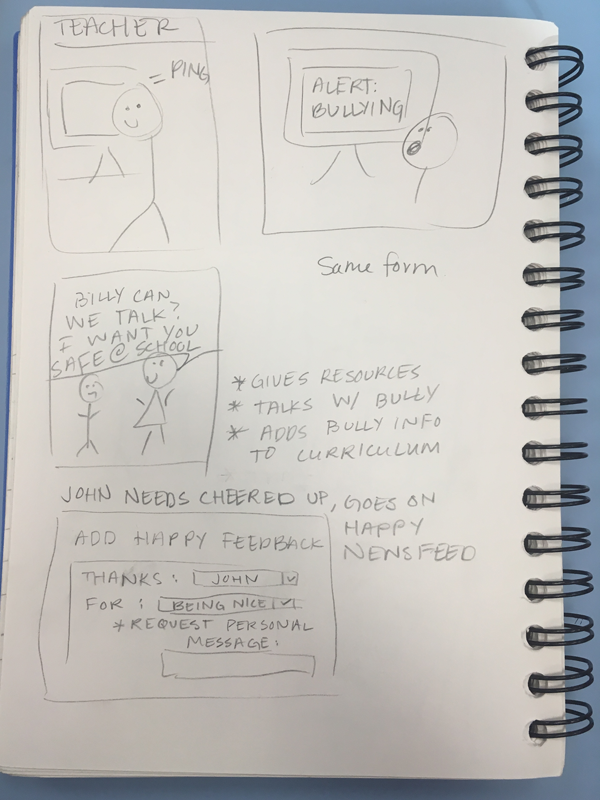 TEACHER
PING
ALERT:
BULLYING
Same form
BILLY CAN
WE TALK?
I WANT YOU
SAFE @ SCHOOL
* GIVES RESOURCES
* TALKS W/ BULLY
* ADDS BULLY INFO
TO CURRICULUM
JOHN NEEDS CHEERED UP, GOES ON
HAPPY
NEWSFEED
ADD HAPPY FEEDBACK
THANKS: JOHN
FOR: BEING NICE
* REQUEST PERSONAL
MESSAGE: